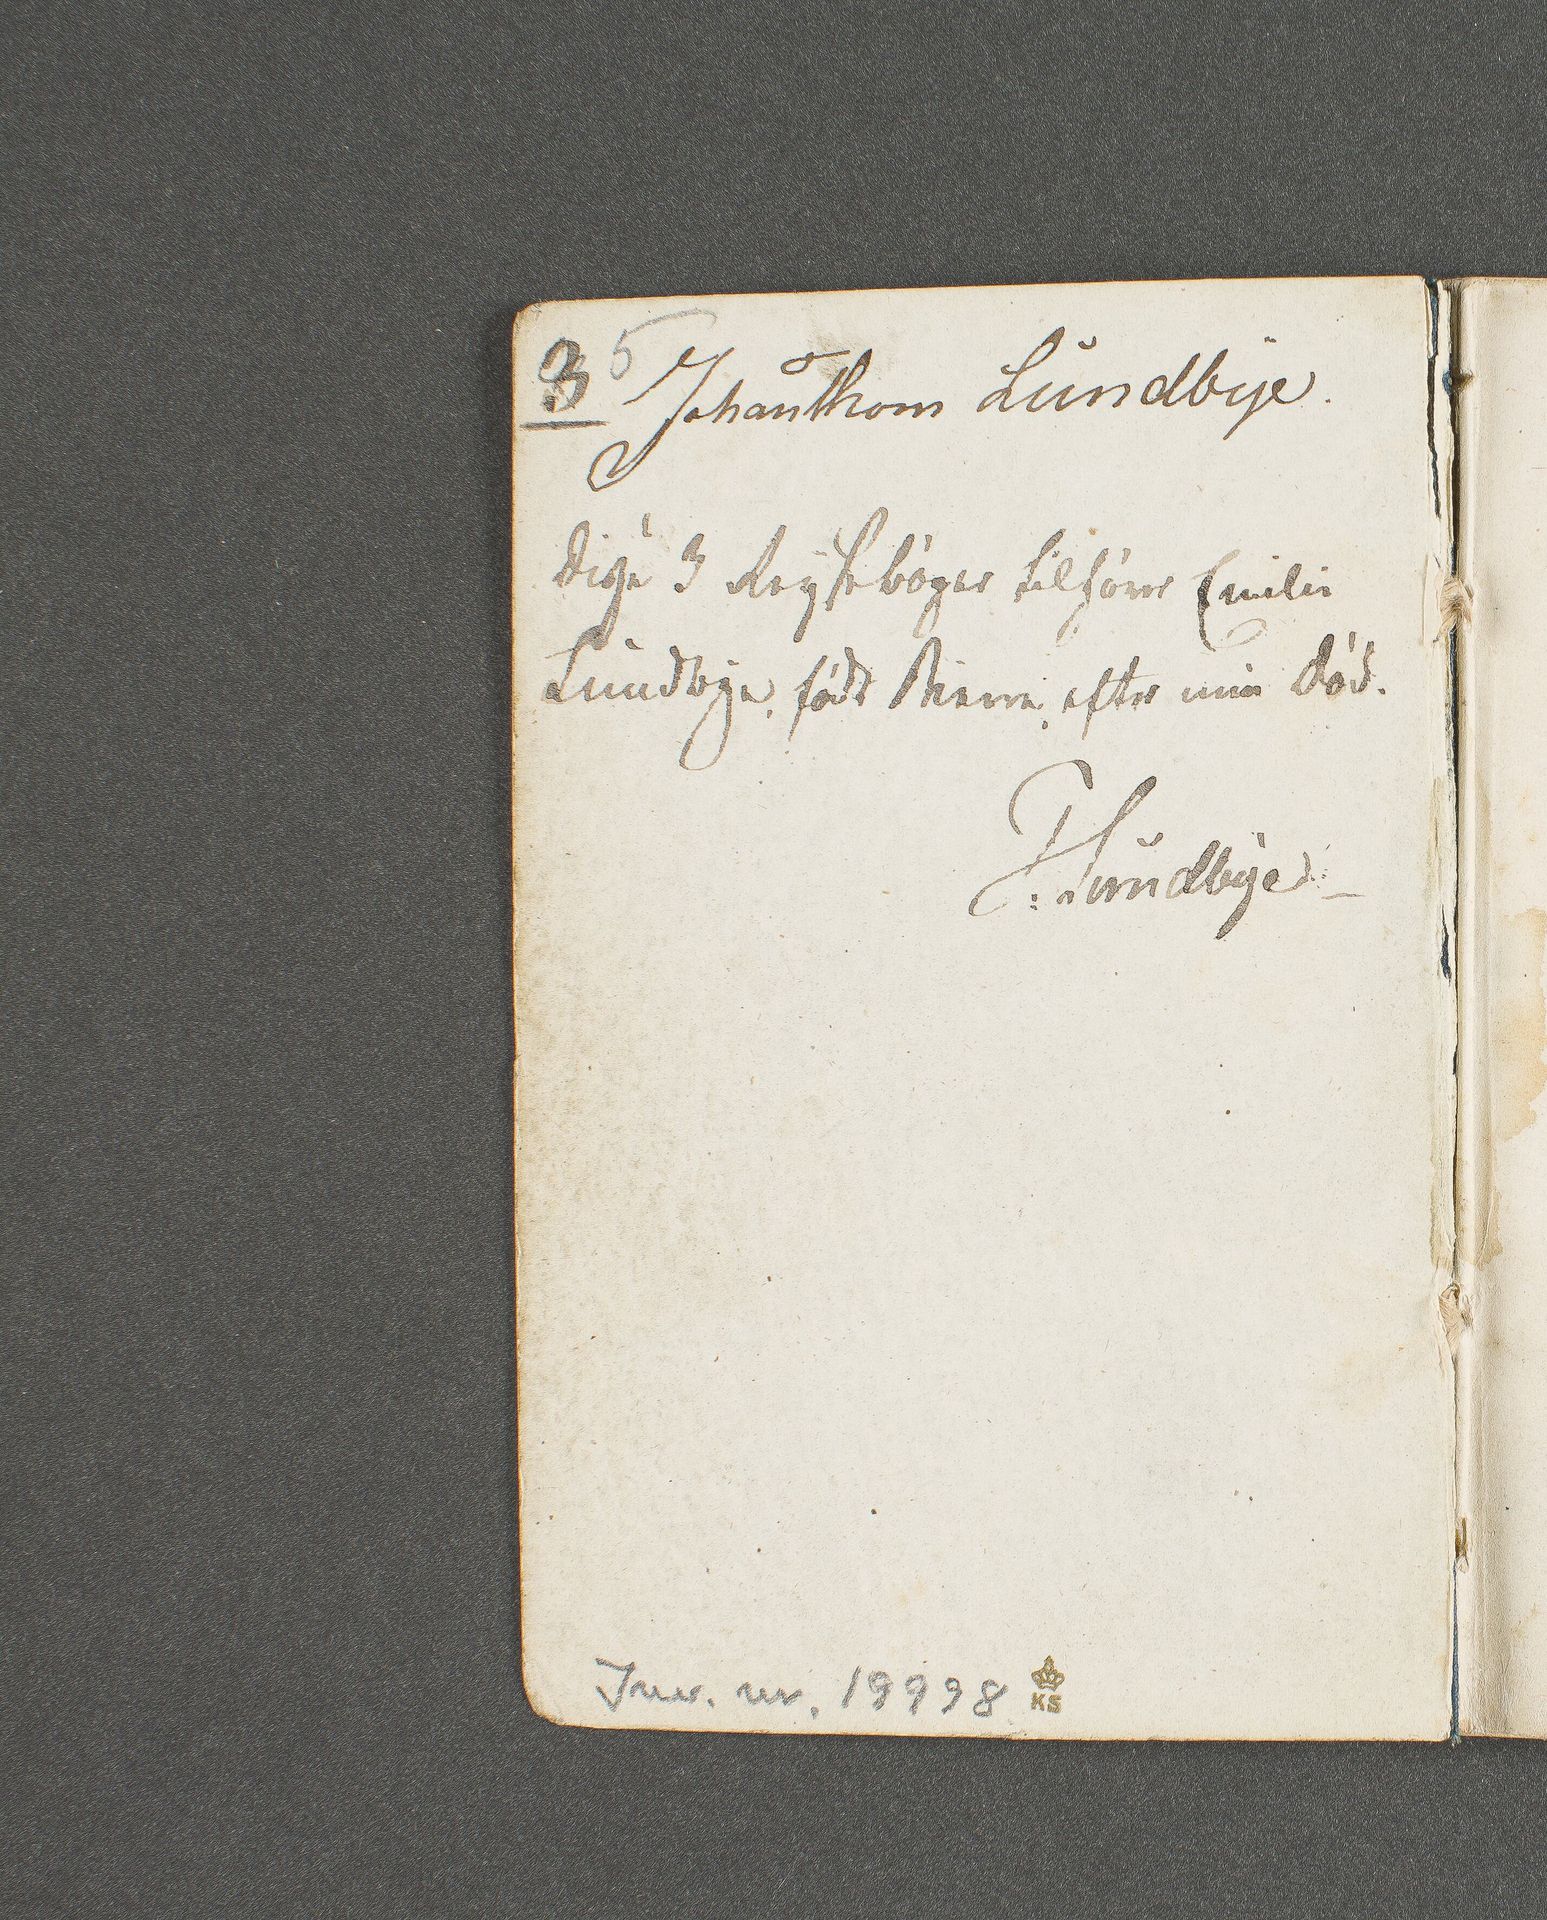 3 5
Johan Thom Lundbye.
Disse 3 Reysebøger tilhører Emilie
Lundbye, født Bierre, efter min Død.
T. Lundbye
Inv. nr. 19998 KS